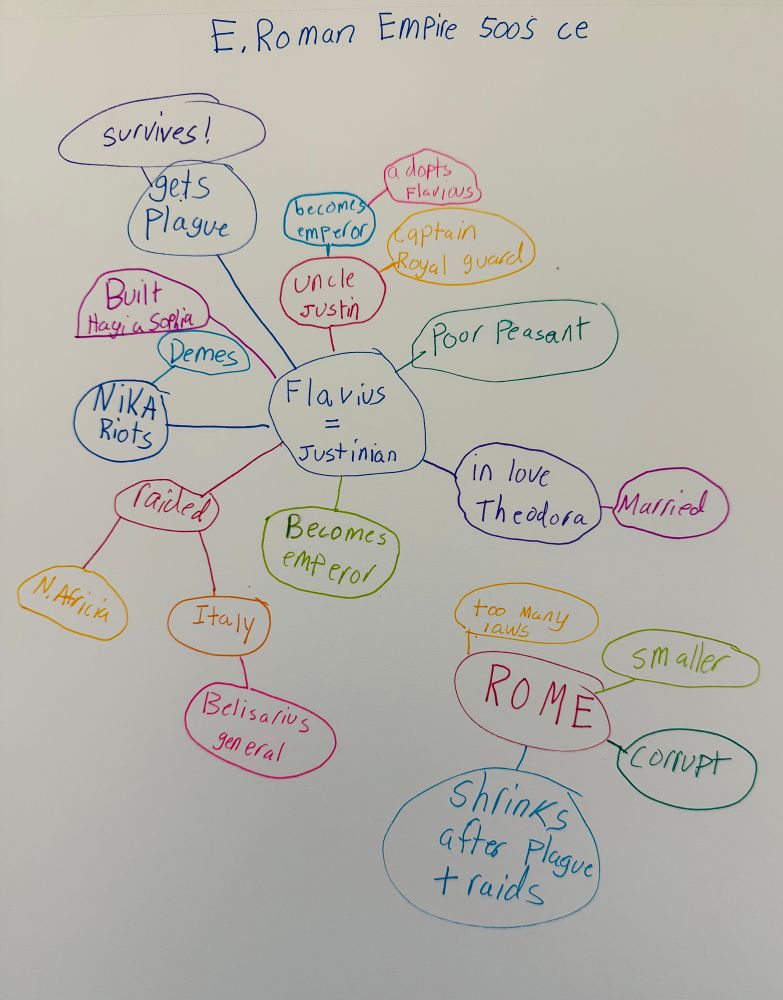 E. Roman Empire 500s ce
survives!
gets
Plague
adopts
Flavious
becomes
emperor
captain
Royal guard
uncle
Justin
Built
Hagia Sophia
Demes
Poor Peasant
NiKA
Riots
Flavius
=
Justinian
in love
Theodora
Married
raided
Becomes
emperor
N. Africia
Italy
Belisarius
general
too many
laws
smaller
ROME
corrupt
shrinks
after plague
+ raids